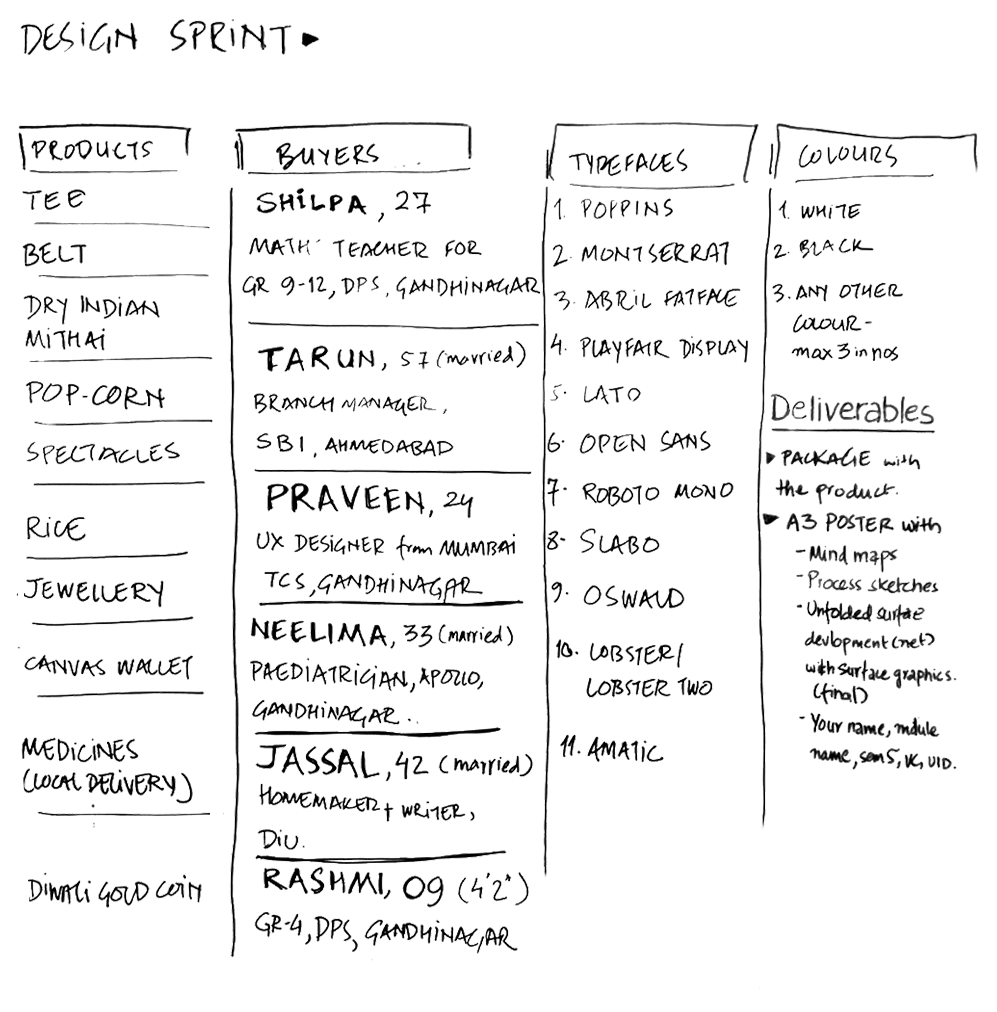 DESIGN SPRINT
PRODUCTS
TEE
BELT
DRY INDIAN
MITHAI
POP-CORN
SPECTACLES
RICE
JEWELLERY
CANVAS WALLET
MEDICINES
(LOCAL DELIVERY)
DIWALI GOLD COIN
BUYERS ...
SHILPA, 27
MATH TEACHER FOR
GR 9-12, DPS, GANDHINAGAR
TARUN, 57 (married)
BRANCH MANAGER,
SBI, AHMEDABAD
PRAVEEN, 24
UX DESIGNER from MUMBAI
TCS, GANDHINAGAR
NEELIMA, 33 (married)
PAEDIATRICIAN, APOLLO,
GANDHINAGAR..
JASSAL, 42 (married)
HOMEMAKER + WRITER,
DIU.
RASHMI, 09 (4'2")
GR-4, DPS, GANDHINAGAR
TYPEFACES
1. POPPINS
2. MONTSERRAT
3. ABRIL FATFACE
4. PLAYFAIR DISPLAY
5. LATO
6. OPEN SANS
7. ROBOTO MONO
8. SLABO
9. OSWALD
10. LOBSTER/
LOBSTER TWO
11. AMATIC
COLOURS
1. WHITE
2. BLACK
3. ANY OTHER
COLOUR -
max 3 in nos
Deliverables
PACKAGE with
the product.
A3 POSTER with
- Mind maps
- Process sketches
- Unfolded surface
devlopment (net)
with surface graphics.
(final)
- Your name, mdule
name, sem 5, VC, UID.